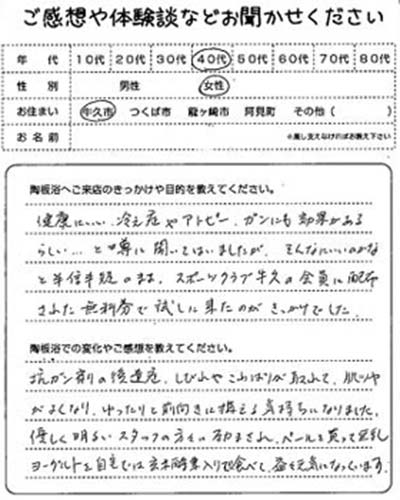 ご感想や体験談などお聞かせください
年代 10代 20代 30代 40代 50代 60代 70代 80代
性別 男性 女性
お住まい 牛久市 つくば市 龍ヶ崎市 阿見町 その他( )
お名前 ※差し支えなければお教え下さい
陶板浴へご来店のきっかけや目的を教えてください。
健康にいい、冷え症やアトピー、ガンにも効果がある
らしい…と噂に聞いてはいましたが、そんなにいいのかな
と半信半疑のまま、スポーツクラブ牛久の会員に配布
された無料券で試しに来たのがきっかけでした。
陶板浴での変化やご感想を教えてください。
抗ガン剤の後遺症、しびれやこわばりが取れて、肌ツヤ
がよくなり、ゆったりと前向きに構える気持ちになりました。
優しく明るいスタッフの方々に励まされ、パールを買って豆乳
ヨーグルトを自宅では玄米酵素入りで食べて、益々元気になっています。